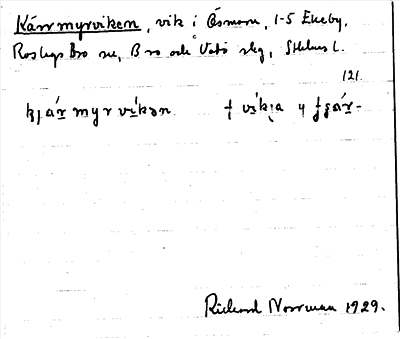 Kärrmyrviken, vik i Ösmaren, 1-5 Ekeby,
Roslags Bro sn, Bro och Vätö slg, Sthlms l.
121.
kjármyrvíkən
Rickard Norrman 1929.